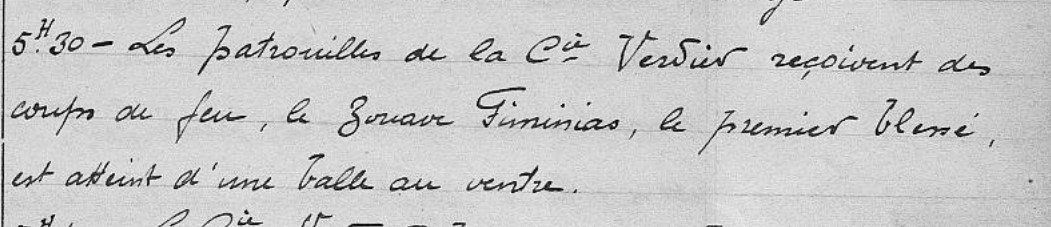 5H30 - Les patrouilles de la Cie Verdier reçoivent des
coups de feu, le Zouave Fiminias, le premier blessé,
est atteint d'une balle au ventre.